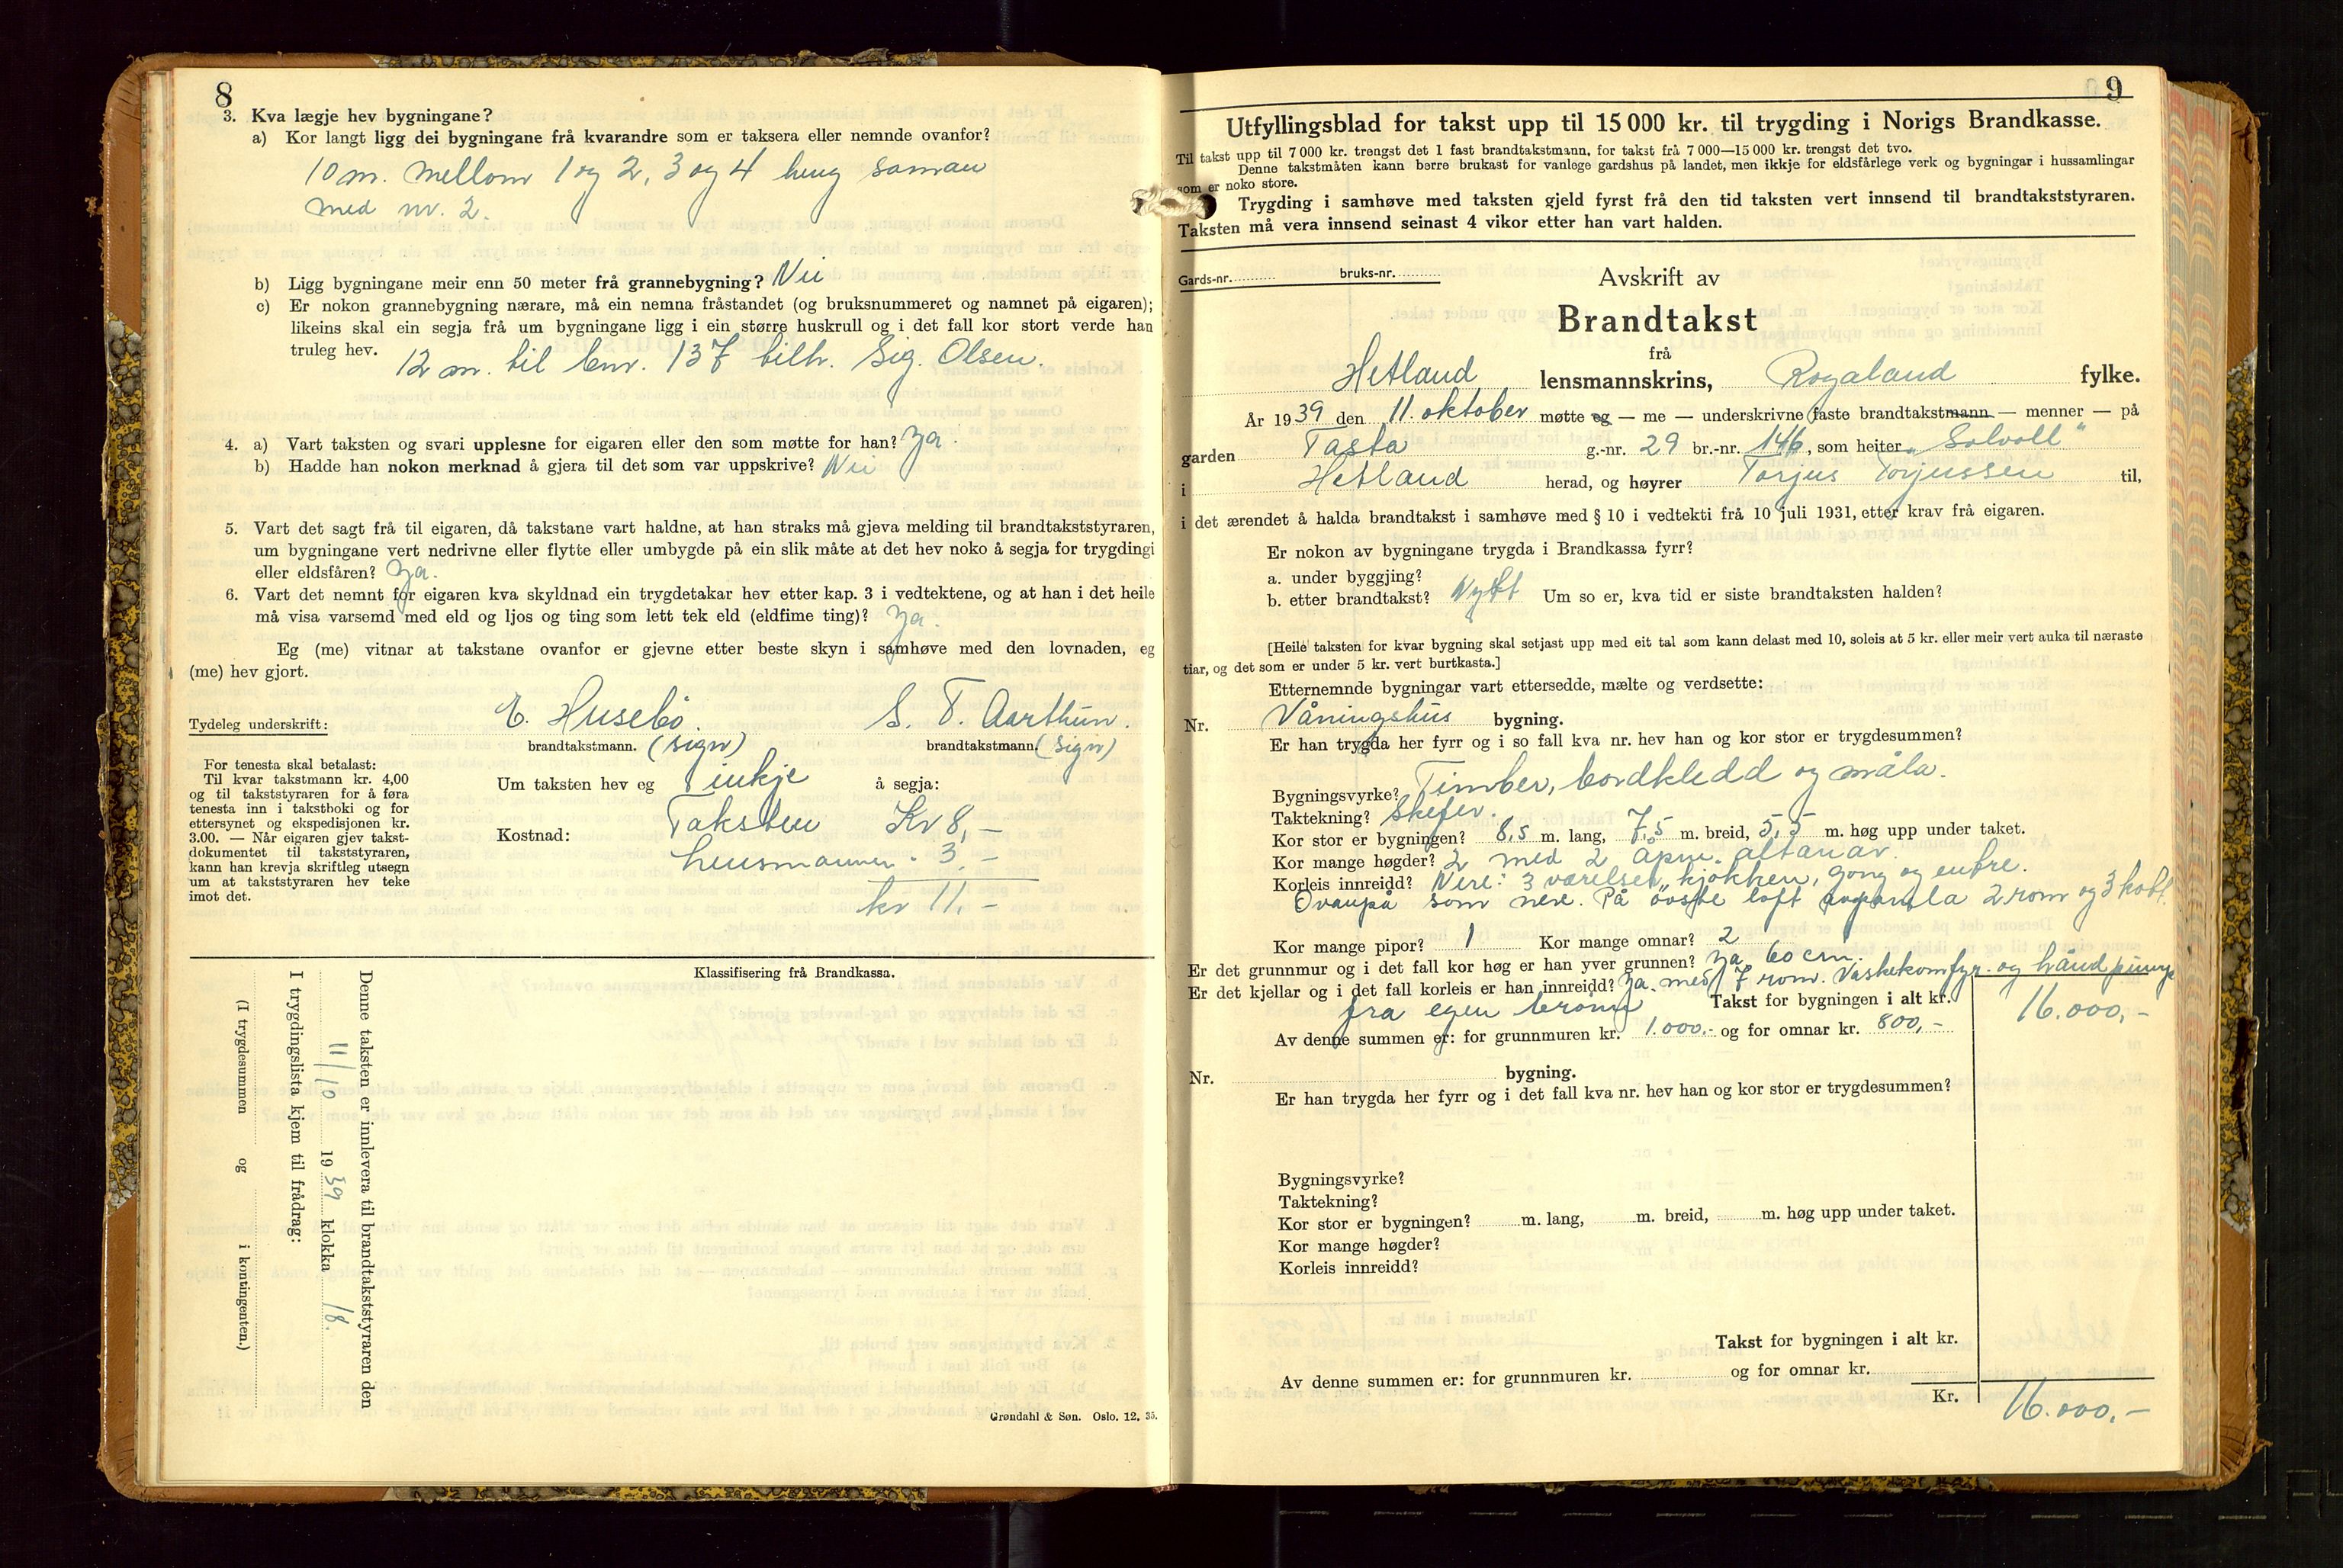 8
3. Kva lægje hev bygningane?
a) Kor langt ligg dei bygningane frå kvarandre som er taksera eller nemnde ovanfor?
10 m. mellom 1 og 2, 3 og 4 heng saman
med nr. 2.
b) Ligg bygningane meir enn 50 meter frå grannebygning? Nei
c) Er nokon grannebygning nærare, må ein nemna fråstandet (og bruksnummeret og namnet på eigaren);
likeins skal ein segja frå um bygningane ligg i ein større huskrull og i det fall kor stort verde han
truleg hev. 12 m. til bnr. 137 tilh. Sig. Olsen.
4. a) Vart taksten og svari upplesne for eigaren eller den som møtte for han? Ja.
b) Hadde han nokon merknad å gjera til det som var uppskrive? Nei
5. Vart det sagt frå til eigaren, då takstane vart haldne, at han straks må gjeva melding til brandtakststyraren,
um bygningane vert nedrivne eller flytte eller umbygde på ein slik måte at det hev noko å segja for trygdingi
eller eldsfåren? Ja.
6. Vart det nemnt for eigaren kva skyldnad ein trygdetakar hev etter kap. 3 i vedtektene, og at han i det heile
må visa varsemd med eld og ljos og ting som lett tek eld (eldfime ting)? Ja.
Eg (me) vitnar at takstane ovanfor er gjevne etter beste skyn i samhøve med den lovnaden, eg
(me) hev gjort.
Tydeleg underskrift: E. Husebö. S. T. Aarthun.
brandtakstmann. (sign) brandtakstmann. (sign)
For tenesta skal betalast:
Til kvar takstmann kr. 4,00
og til takststyraren for å føra
tenesta inn i takstboki og for
ettersynet og ekspedisjonen kr.
3.00. — Når eigaren gjev takst-
dokumentet til takststyraren,
kann han krevja skriftleg utsegn
um at takststyraren hev teke
imot det.
Um taksten hev eg inkje å segja:
Kostnad: Taksten Kr 8,—
Lensmannen " 3 —
kr 11.—
Klassifisering frå Brandkassa.
Denne taksten er innlevera til brandtakststyraren den
11/10 1939 klokka 18.
I trygdingslista kjem til frådrag:
(I trygdesummen og i kontingenten.)
Grøndahl & Søn. Oslo. 12. 35.
9
Utfyllingsblad for takst upp til 15 000 kr. til trygding i Norigs Brandkasse.
Til takst upp til 7 000 kr. trengst det 1 fast brandtakstmann, for takst frå 7 000—15 000 kr. trengst det tvo.
Denne takstmåten kann berre brukast for vanlege gardshus på landet, men ikkje for eldsfårlege verk og bygningar i hussamlingar
som er noko store.
Trygding i samhøve med taksten gjeld fyrst frå den tid taksten vert innsend til brandtakststyraren.
Taksten må vera innsend seinast 4 vikor etter han vart halden.
Gards-nr. bruks-nr.
Avskrift av
Brandtakst
frå
Hetland lensmannskrins, Rogaland fylke.
År 1939 den 11. oktober møtte eg — me — underskrivne faste brandtakstmann — menner — på
garden Tasta g.-nr. 29 br.-nr. 146, som heiter „Solvoll"
i Hetland herad, og høyrer Torjus Torjussen til,
i det ærendet å halda brandtakst i samhøve med § 10 i vedtekti frå 10 juli 1931, etter krav frå eigaren.
Er nokon av bygningane trygda i Brandkassa fyrr?
a. under byggjing?
b. etter brandtakst? Nytt Um so er, kva tid er siste brandtaksten halden?
[Heile taksten for kvar bygning skal setjast upp med eit tal som kann delast med 10, soleis at 5 kr. eller meir vert auka til næraste
tiar, og det som er under 5 kr. vert burtkasta.]
Etternemnde bygningar vart ettersedde, mælte og verdsette:
Nr. Våningshus bygning.
Er han trygda her fyrr og i so fall kva nr. hev han og kor stor er trygdesummen?
Bygningsvyrke? Timber, bordkledd og måla.
Taktekning? Skefer.
Kor stor er bygningen? 8,5 m. lang, 7,5 m. breid, 5,5 m. høg upp under taket.
Kor mange høgder? 2 med 2 åpne altanar.
Korleis innreidd? Nere: 3 værelser, kjøkken, gong og entre.
Ovanpå som nere. På øvste loft 2 rom og 3 kott.
Kor mange pipor? 1 Kor mange omnar? 2
Er det grunnmur og i det fall kor høg er han yver grunnen? Ja 60 cm.
Er det kjellar og i det fall korleis er han innreidd? Ja. med 7 rom. Vaskekomfyr og håndpumpe
fra egen brönn Takst for bygningen i alt kr. 16.000,—
Av denne summen er: for grunnmuren kr. 1.000.- og for omnar kr. 800,—
Nr. bygning.
Er han trygda her fyrr og i det fall kva nr. hev han og kor stor er trygdesummen?
Bygningsvyrke?
Taktekning?
Kor stor er bygningen? m. lang, m. breid, m. høg upp under taket.
Kor mange høgder?
Korleis innreidd?
Takst for bygningen i alt kr.
Av denne summen er: for grunnmuren kr. og for omnar kr.
Kr. 16.000,—